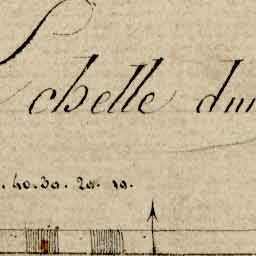 Echelle du
. 40. 30. 20. 10.